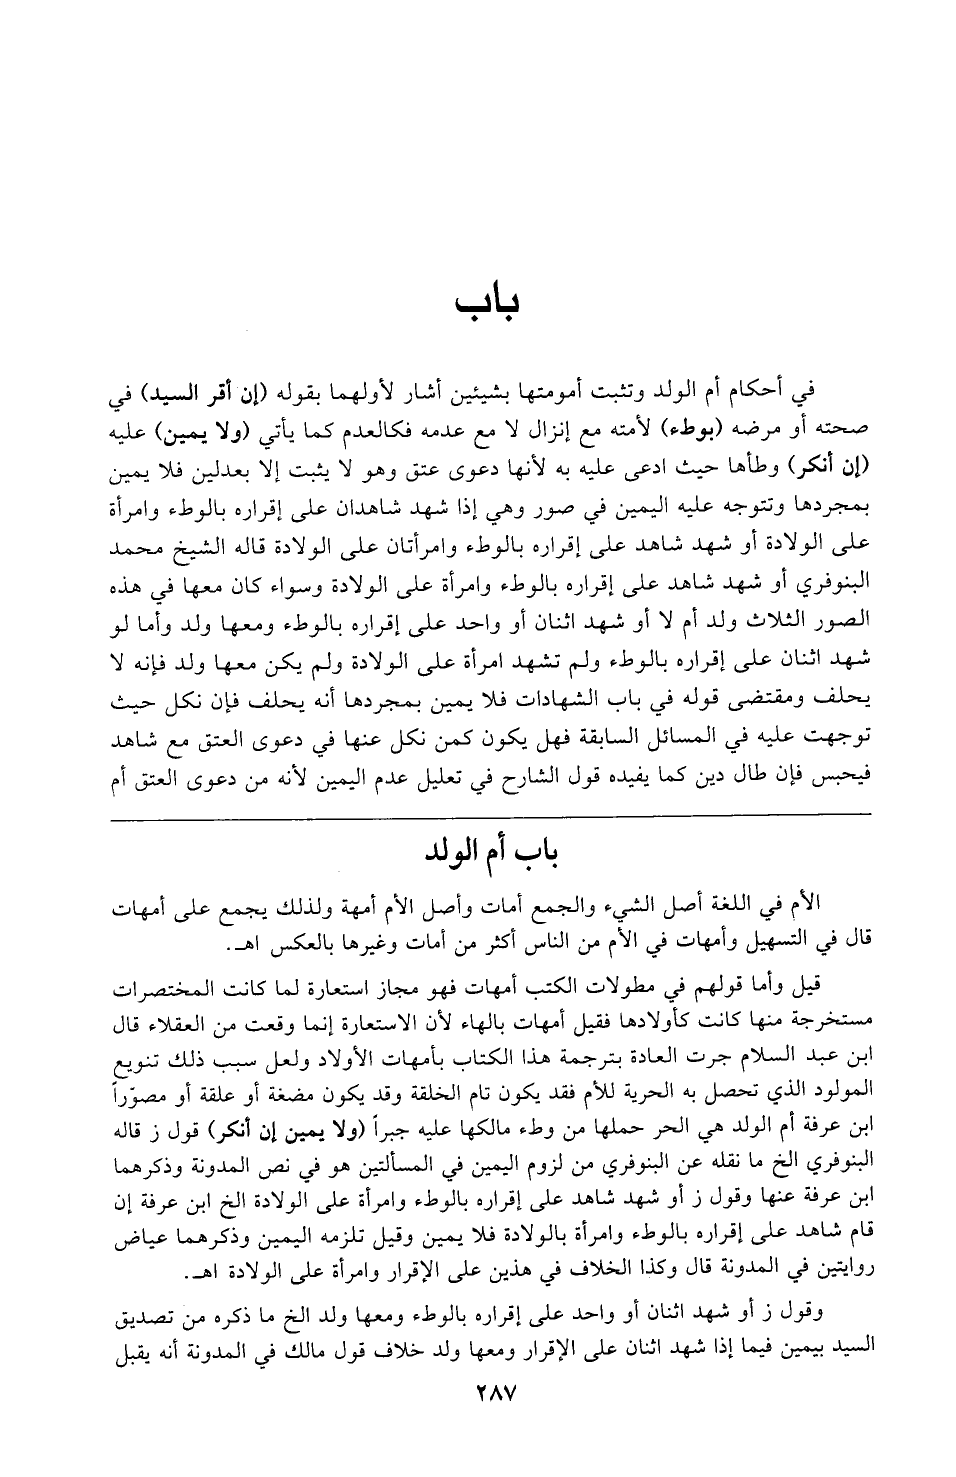 باب
في أحكام أم الولد وتثبت أمومتها بشيئين أشار لأولهما بقوله (إن أقر السيد) في
صحته أو مرضه (بوطء) لأمته مع إنزال لا مع عدمه فكالعدم كما يأتي (ولا يمين) عليه
(إن أنكر) وطأها حيث ادعى عليه به لأنها دعوى عتق وهو لا يثبت إلا بعدلين فلا يمين
بمجردها وتتوجه عليه اليمين في صور وهي إذا شهد شاهدان على إقراره بالوطء وامرأة
على الولادة أو شهد شاهد على إقراره بالوطء وامرأتان على الولادة قاله الشيخ محمد
البنوفري أو شهد شاهد على إقراره بالوطء وامرأة على الولادة وسواء كان معها في هذه
الصور الثلاث ولد أم لا أو شهد اثنان أو واحد على إقراره بالوطء ومعها ولد وأما لو
شهد اثنان على إقراره بالوطء ولم تشهد امرأة على الولادة ولم يكن معها ولد فإنه لا
يحلف ومقتضى قوله في باب الشهادات فلا يمين بمجردها أنه يحلف فإن نكل حيث
توجهت عليه في المسائل السابقة فهل يكون كمن نكل عنها في دعوى العتق مع شاهد
فيحبس فإن طال دين كما يفيده قول الشارح في تعليل عدم اليمين لأنه من دعوى العتق أم
باب أم الولد
الأم في اللغة أصل الشيء والجمع أمات وأصل الأم أمهة ولذلك يجمع على أمهات
قال في التسهيل وأمهات في الأم من الناس أكثر من أمات وغيرها بالعكس اهـ.
قيل وأما قولهم في مطولات الكتب أمهات فهو مجاز استعارة لما كانت المختصرات
مستخرجة منها كانت كأولادها فقيل أمهات بالهاء لأن الاستعارة إنما وقعت من العقلاء قال
ابن عبد السلام جرت العادة بترجمة هذا الكتاب بأمهات الأولاد ولعل سبب ذلك تنويع
المولود الذي تحصل به الحرية للأم فقد يكون تام الخلقة وقد يكون مضغة أو علقة أو مصوّراً
ابن عرفة أم الولد هي الحر حملها من وطء مالكها عليه جبراً (ولا يمين إن أنكر) قول ز قاله
البنوفري الخ ما نقله عن البنوفري من لزوم اليمين في المسألتين هو في نص المدونة وذكرهما
ابن عرفة عنها وقول ز أو شهد شاهد على إقراره بالوطء وامرأة على الولادة الخ ابن عرفة إن
قام شاهد على إقراره بالوطء وامرأة بالولادة فلا يمين وقيل تلزمه اليمين وذكرهما عياض
روايتين في المدونة قال وكذا الخلاف في هذين على الإقرار وامرأة على الولادة اهـ.
وقول ز أو شهد اثنان أو واحد على إقراره بالوطء ومعها ولد الخ ما ذكره من تصديق
السيد بيمين فيما إذا شهد اثنان على الإقرار ومعها ولد خلاف قول مالك في المدونة أنه يقبل
٢٨٧